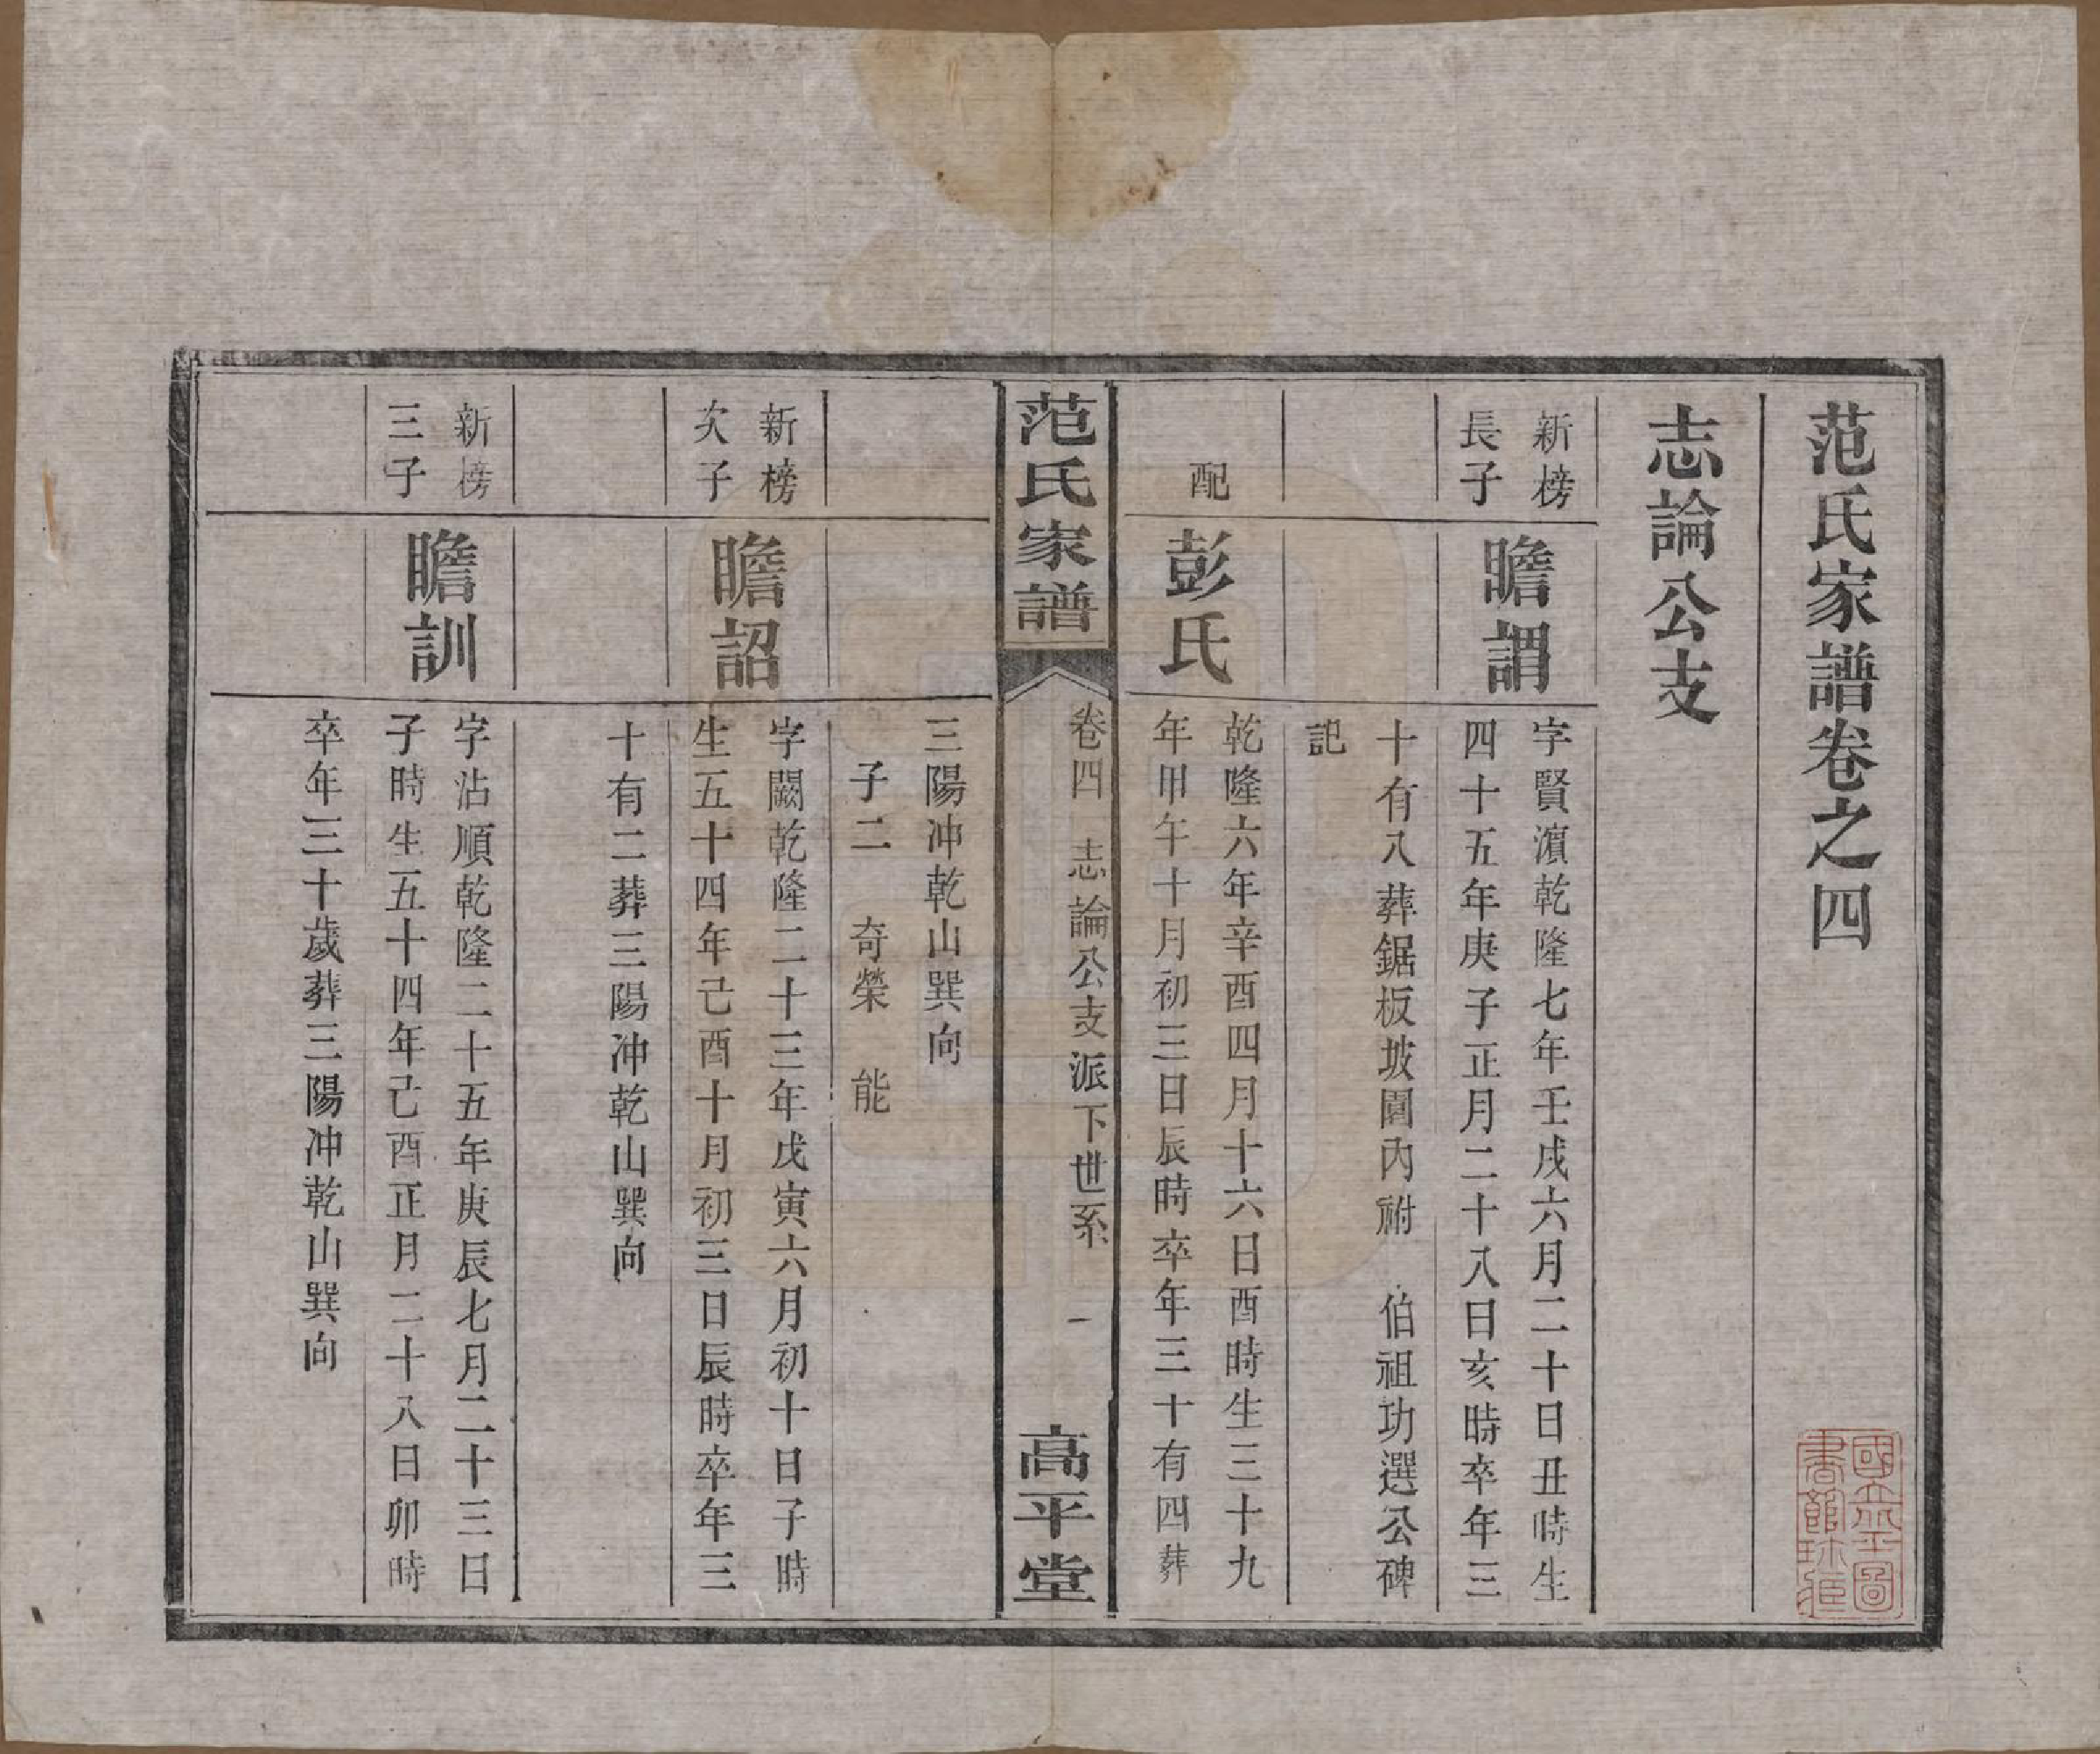 范氏家譜卷之四
志論公支
新榜
長子
瞻謂
字賢濵乾隆七年壬戌六月二十日丑時生
四十五年庚子正月二十八日亥時卒年三
十有八葬鋸板坡園內祔 伯祖功選公碑
記
配
彭氏
乾隆六年辛酉四月十六日酉時生三十九
年甲午十月初三日辰時卒年三十有四葬
范氏家譜
卷四 志論公支派下世系 一
高平堂
三陽冲乾山巽向
子二 奇榮 能
新榜
次子
瞻詔
字闕乾隆二十三年戊寅六月初十日子時
生五十四年己酉十月初三日辰時卒年三
十有二葬三陽冲乾山巽向
新榜
三子
瞻訓
字沾順乾隆二十五年庚辰七月二十三日
子時生五十四年己酉正月二十八日卯時
卒年三十歲葬三陽冲乾山巽向
國立北平圖
書館珍藏